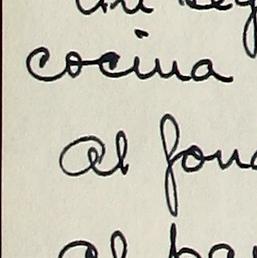 cocina
al fon
al ba